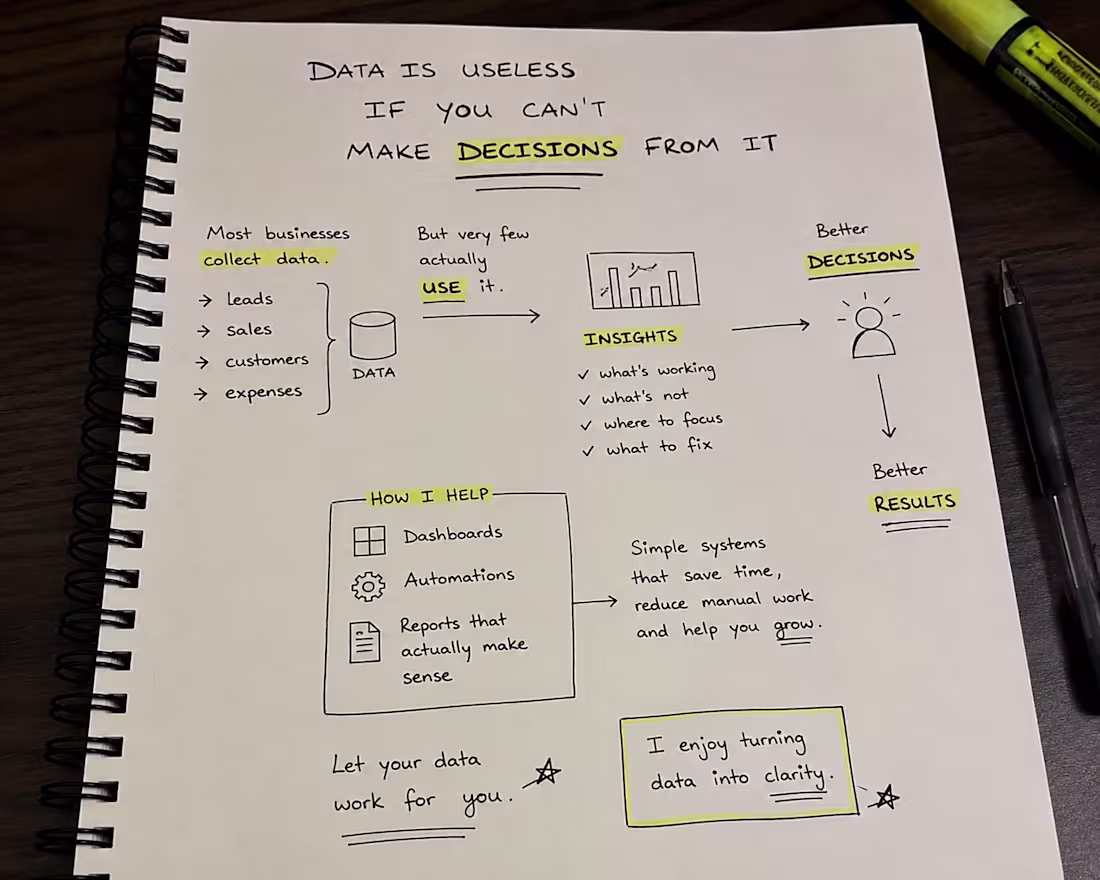 DATA IS USELESS
IF YOU CAN'T
MAKE DECISIONS FROM IT
Most businesses
collect data.
→ leads
→ sales
→ customers
→ expenses
DATA
But very few
actually
USE it.
INSIGHTS
✓ what's working
✓ what's not
✓ where to focus
✓ what to fix
Better
DECISIONS
Better
RESULTS
HOW I HELP
Dashboards
Automations
Reports that
actually make
sense
Simple systems
that save time,
reduce manual work
and help you grow.
Let your data
work for you.
I enjoy turning
data into clarity.